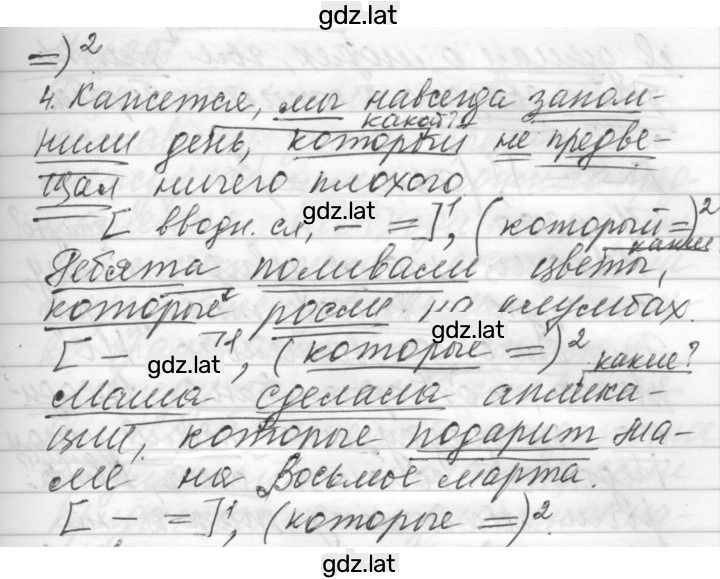 gdz.lat
=)²
4. Кажется, мы навсегда запом-
какой?
нили день, который не предве-
щал ничего плохого
gdz.lat
[ вводн. сл, – = ]¹, (который =)²
какие
Ребята поливали цветы,
которые росли на клумбах.
gdz.lat
[ – ]¹, (которые =)²
gdz.lat
какие?
Маша сделала аплика-
ции, которые подарит ма-
ме на Восьмое марта.
[ – = ]¹, (которые =)².
gdz.lat